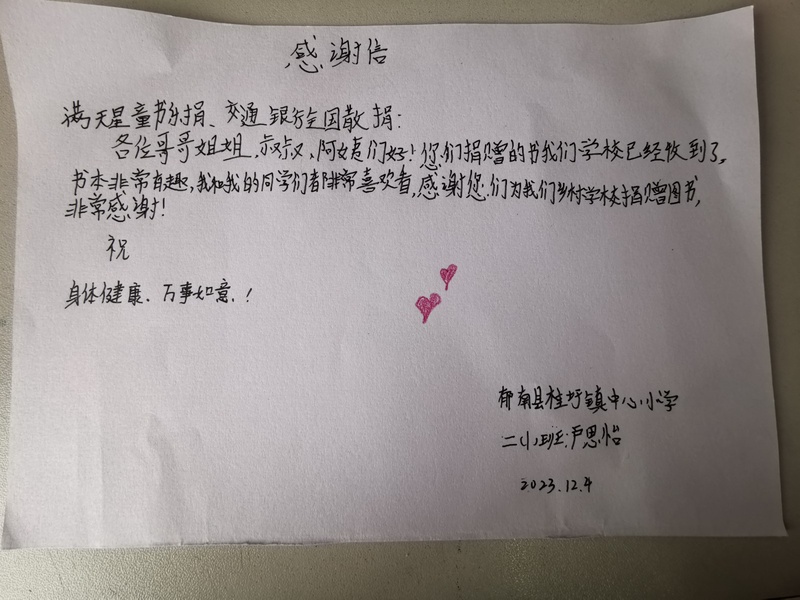 感谢信
满天星童书乐捐、交通银行全国散捐：
各位哥哥姐姐，叔叔、阿姨们好！您们捐赠的书我们学校已经收到了，
书本非常有趣，我和我的同学们都非常喜欢看，感谢您们为我们乡村学校捐赠图书，
非常感谢！
祝
身体健康、万事如意！
郁南县桂圩镇中心小学
二(1)班：卢思怡
2023.12.4